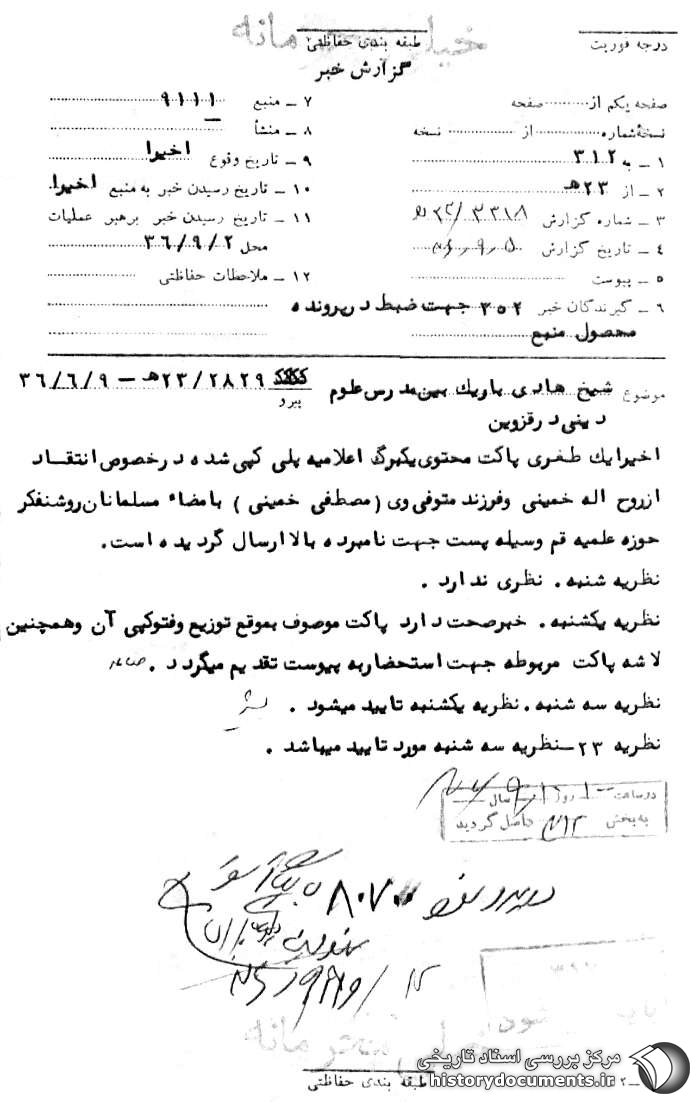 خیلی محرمانه
درجه فوریت
طبقه بندی حفاظتی
گزارش خبر
صفحه یکم از .......... صفحه
نسخهٔ شماره .......... از .......... نسخه
۱ – به ۳۱۲
۲ – از ۲۳ هـ
۳ – شماره گزارش ۳۳۱۸/
۴ – تاریخ گزارش
۵ – پیوست
۶ – گیرندگان خبر ۳۵۲ جهت ضبط در پرونده
محصول منبع
۷ – منبع ۹۱۱۱
۸ – منشأ –
۹ – تاریخ وقوع اخیرا
۱۰ – تاریخ رسیدن خبر به منبع اخیرا
۱۱ – تاریخ رسیدن خبر برهبر عملیات
محل ۳۶/۹/۲
۱۲ – ملاحظات حفاظتی
موضوع شیخ هادی باریك بین مدرس علوم ۲۳/۲۸۲۹ هـ – ۳۶/۶/۹
دینی در قزوین پیرو
اخیرا یك طغری پاکت محتوی یکبرگ اعلامیه پلی کپی شده در خصوص انتقاد
از روح اله خمینی و فرزند متوفی وی (مصطفی خمینی) بامضاء مسلمانان روشنفکر
حوزه علمیه قم وسیله پست جهت نامبرده بالا ارسال گردیده است.
نظریه شنبه. نظری ندارد.
نظریه یکشنبه. خبر صحت دارد پاکت موصوف بموقع توزیع وفتوکپی آن وهمچنین
لاشه پاکت مربوطه جهت استحضار به پیوست تقدیم میگردد.
نظریه سه شنبه. نظریه یکشنبه تایید میشود.
نظریه ۲۳ – نظریه سه شنبه مورد تایید میباشد.
در ساعت روز سال
به بخش ۳۱۲ واصل گردید
۸۰۷۰
خیلی محرمانه
طبقه بندی حفاظتی
مرکز بررسی اسناد تاریخی
historydocuments.ir